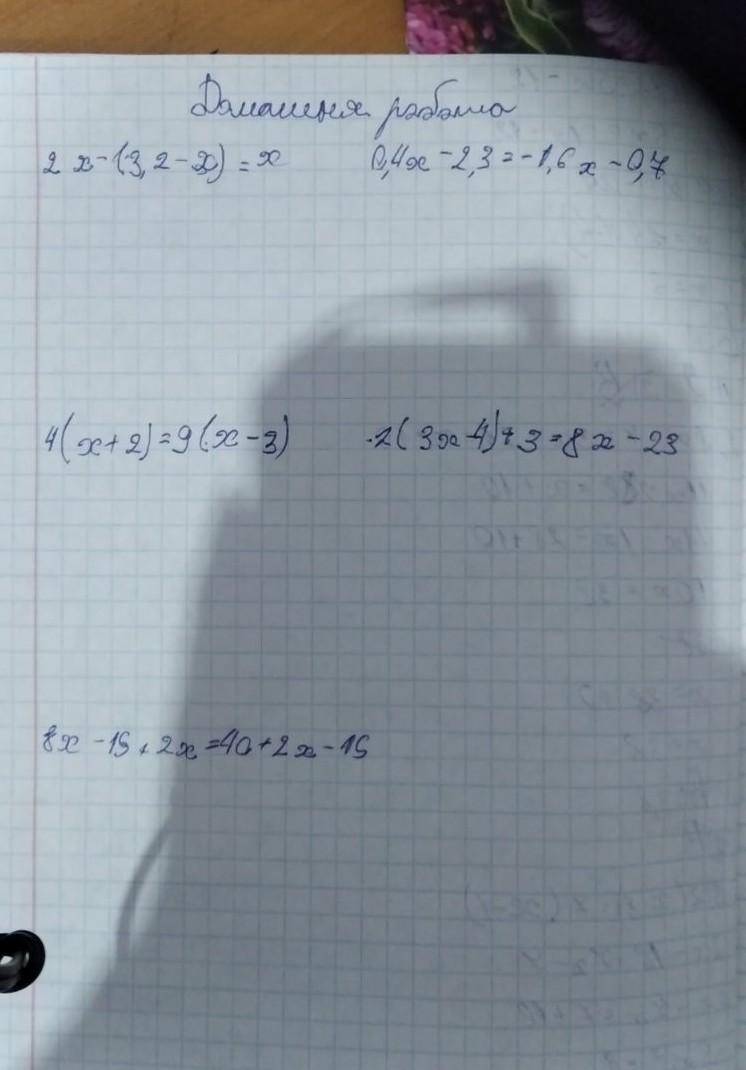 Домашняя работа
2x-(3,2-x)=x 0,4x-2,3=-1,6x-0,7
4(x+2)=9(x-3) -2(3x-4)+3=8x-23
8x-15+2x=40+2x-15